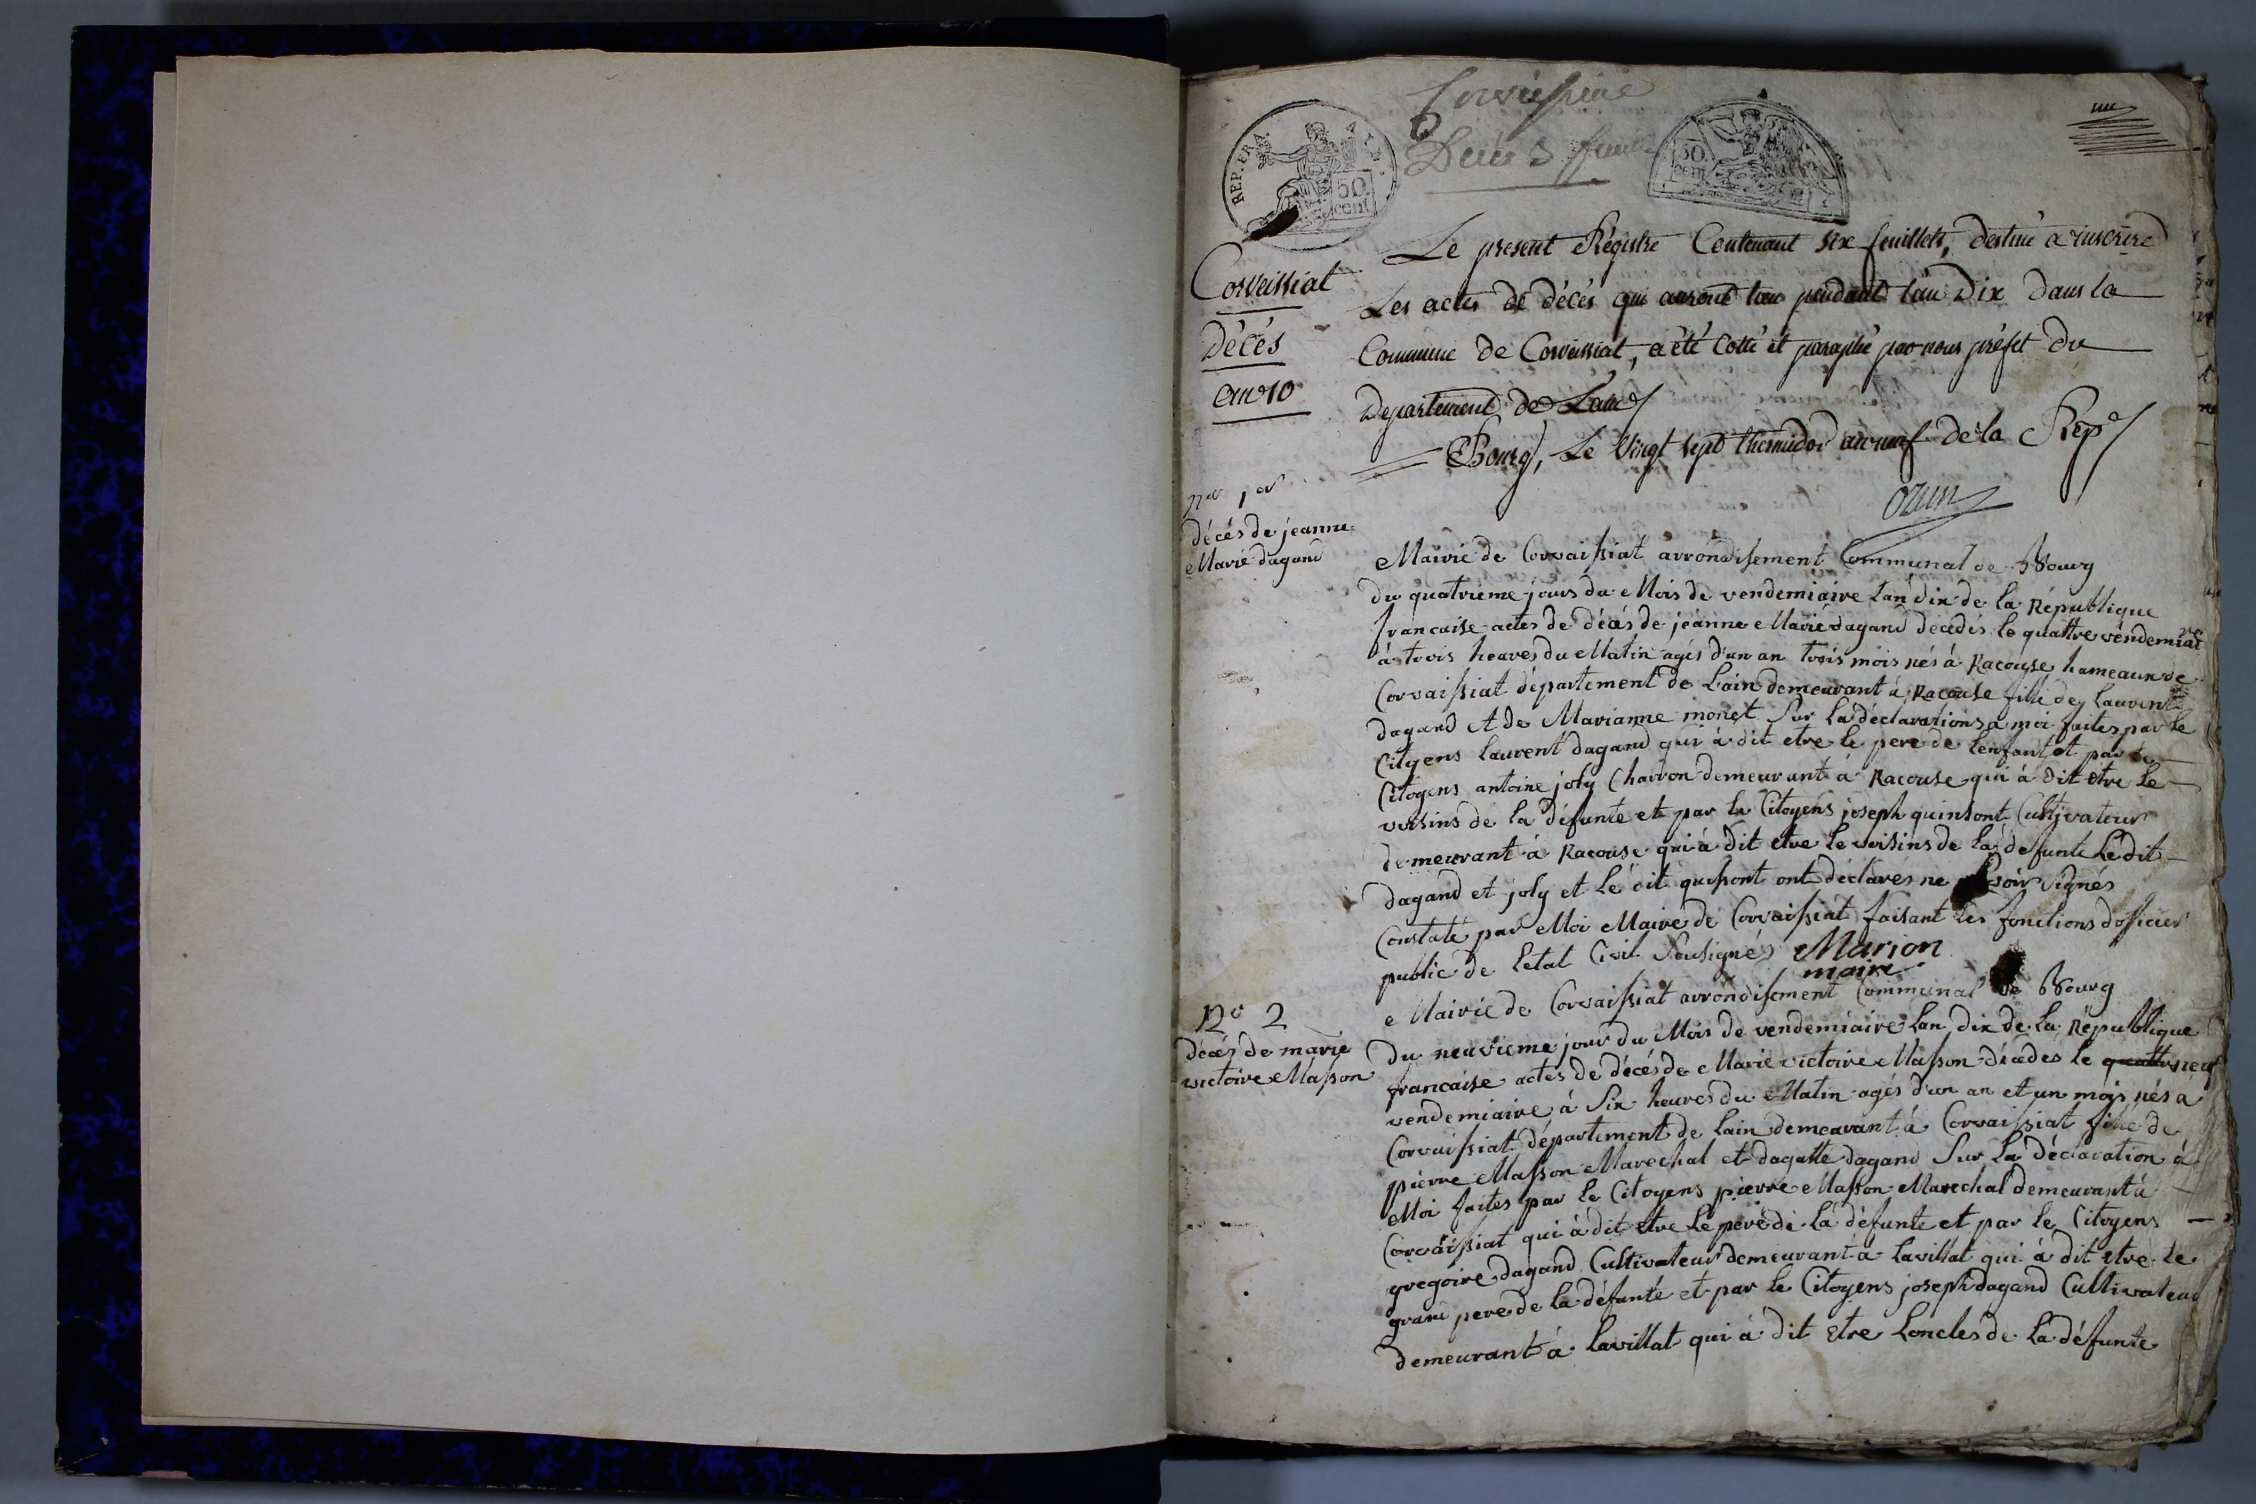 Corveissiat
REP. FRA.
50
cent
50
cent
un
Corveissiat
Décès
an 10
Le present Régistre Contenant six feuillets, destiné a inscrire
Les actes de décès qui auront lieu pendant l'an Dix dans la
Commune de Corveissiat, a été Cotté et paraphé par nous préfet du
Departement de Lain
Bourg, Le Vingt sept thermidor an neuf de la Repe
ozun
no 1er
décés de jeanne
Marie dagand
Mairie de Corvaissiat arrondisement Communal de Bourg
du quatrieme jours du Mois de vendemiaire lan dix de la République
francaise actes de décés de jéanne Marie dagand décédés le quattre vendemiaire
à trois heures du Matin agés d'un an trois mois nés à Racouse hameaux de
Corvaissiat département de Lain demeurant à Racouse fille de Laurent
dagand et de Marianne monet Sur la déclarations a moi faites par le
Citoyens laurent dagand qui à dit etre le pere de lenfant et par le
Citoyens antoine joly Charron demeurant à Racouse qui à dit etre le
voisins de la défunte et par le Citoyens joseph quinsont Cultivateur
demeurant à Racouse qui à dit etre le voisins de la défunte Lédit
dagand et joly et Lé dit quisont ont déclarés ne savoir signés
Constaté par Moi Maire de Corvaissiat faisant les fonctions dofficier
public de letat Civil Sousignés Marion
maire
No 2
décés de marie
victoire Masson
Mairie de Corvaissiat arrondisement Communal de Bourg
Du neuvieme jour du Mois de vendemiaire lan dix de la Republique
francaise actes de décés de Marie victoire Masson décedés le quattre neuf
vendemiaire à Six heures du Matin agés d'un an et un mois nés à
Corvaissiat département de lain demeurant à Corvaissiat fille de
pierre Masson Marechal et dagatte dagand Sur La déclaration à
Moi faites par le Citoyens pierre Masson Marechal demeurant à
Corvaissiat qui à dit etre le pere de la défunte et par le Citoyens
gregoire dagand Cultivateur demeurant à Lavillat qui à dit etre le
grand pere de la défunte et par le Citoyens joseph dagand Cultivateur
demeurant à Lavillat qui à dit etre Loncles de la défunte